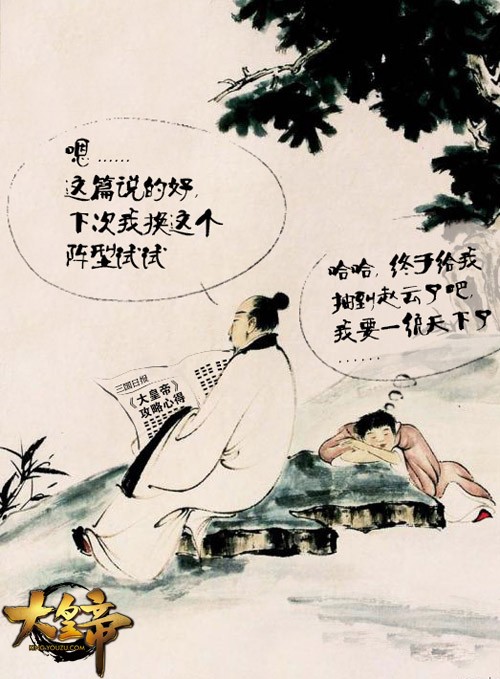 嗯……
这篇说的好,
下次我换这个
阵型试试
哈哈, 终于给我
抽到赵云了吧,
我要一统天下了
……
三国日报
《大皇帝》
攻略心得
大皇帝